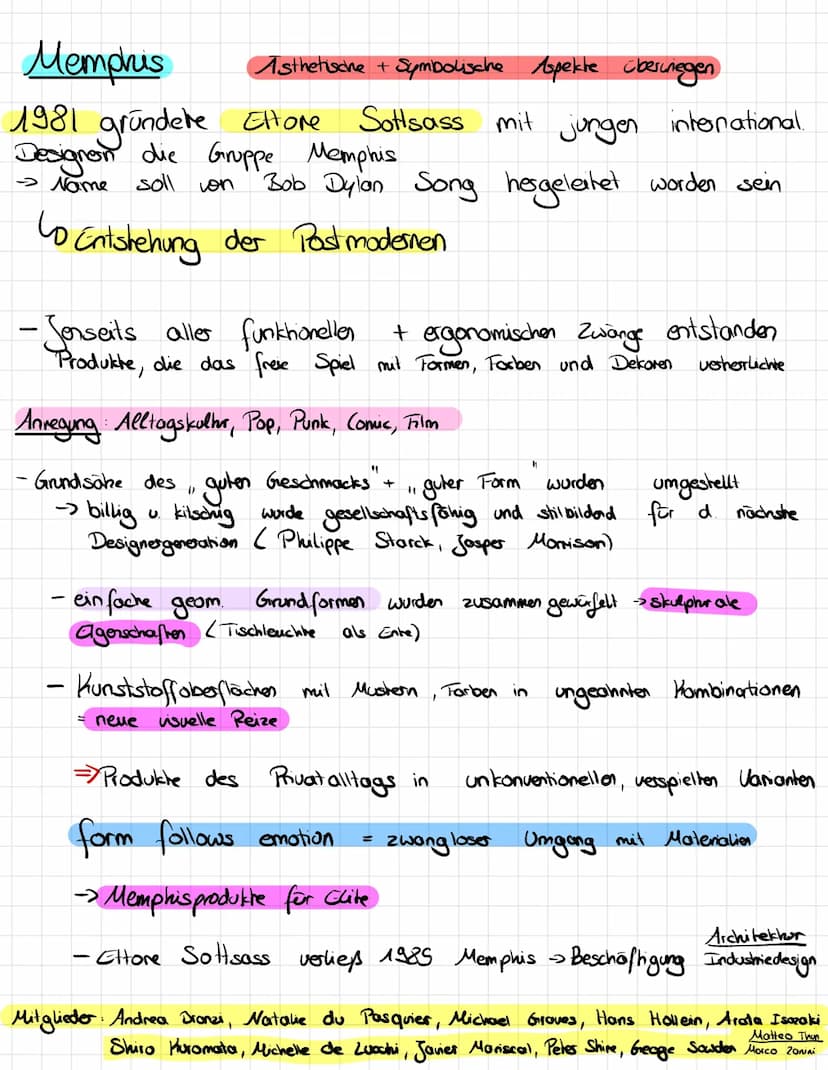 Memphis
Ästhetische + Symbolische Aspekte überwiegen
1981 gründete Ettore Sottsass mit jungen international.
Designern die Gruppe Memphis
→ Name soll von Bob Dylan Song hergeleitet worden sein
↳ Entstehung der Postmodernen
- Jenseits aller funktionellen + ergonomischen Zwänge entstanden
Produkte, die das freie Spiel mit Formen, Farben und Dekoren verherrlichte
Anregung: Alltagskultur, Pop, Punk, Comic, Film
- Grundsätze des „guten Geschmacks" + „guter Form" wurden umgestellt
→ billig u. kitschig wurde gesellschaftsfähig und stilbildend für d. nächste
Designergeneration (Philippe Starck, Jasper Morrison)
- einfache geom. Grundformen wurden zusammen gewürfelt → skulpturale
Eigenschaften (Tischleuchte als Ente)
- Kunststoffoberflächen mit Mustern, Farben in ungeahnten Kombinationen
= neue visuelle Reize
⇒ Produkte des Privatalltags in unkonventionellen, verspielten Varianten
form follows emotion = zwangloser Umgang mit Materialien
→ Memphisprodukte für Elite
- Ettore Sottsass verließ 1985 Memphis → Beschäftigung Architektur
Industriedesign
Mitglieder: Andrea Branzi, Natalie du Pasquier, Michael Graves, Hans Hollein, Arata Isozaki
Shiro Kuromata, Michelle de Lucchi, Javier Mariscal, Peter Shire, George Sowden Matteo Thun
Marco Zanini